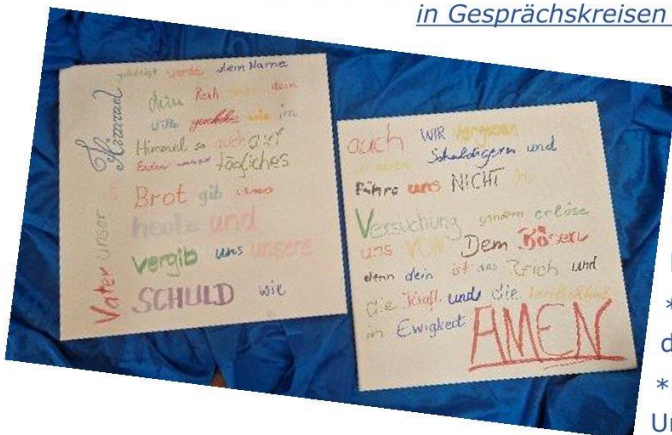 in Gesprächskreisen
Vater unser
geheiligt werde dein Name
dein Reich dein
Wille im
Himmel so auch auf
Erden unser tägliches
Brot gib uns
heute und
vergib uns unsere
SCHULD wie
auch WIR vergeben
Schuldigern und
führe uns NICHT in
Versuchung sondern erlöse
uns VON Dem Bösen
denn dein ist das Reich und
die Kraft und die Herrlichkeit
in Ewigkeit AMEN
*
d
*
Un